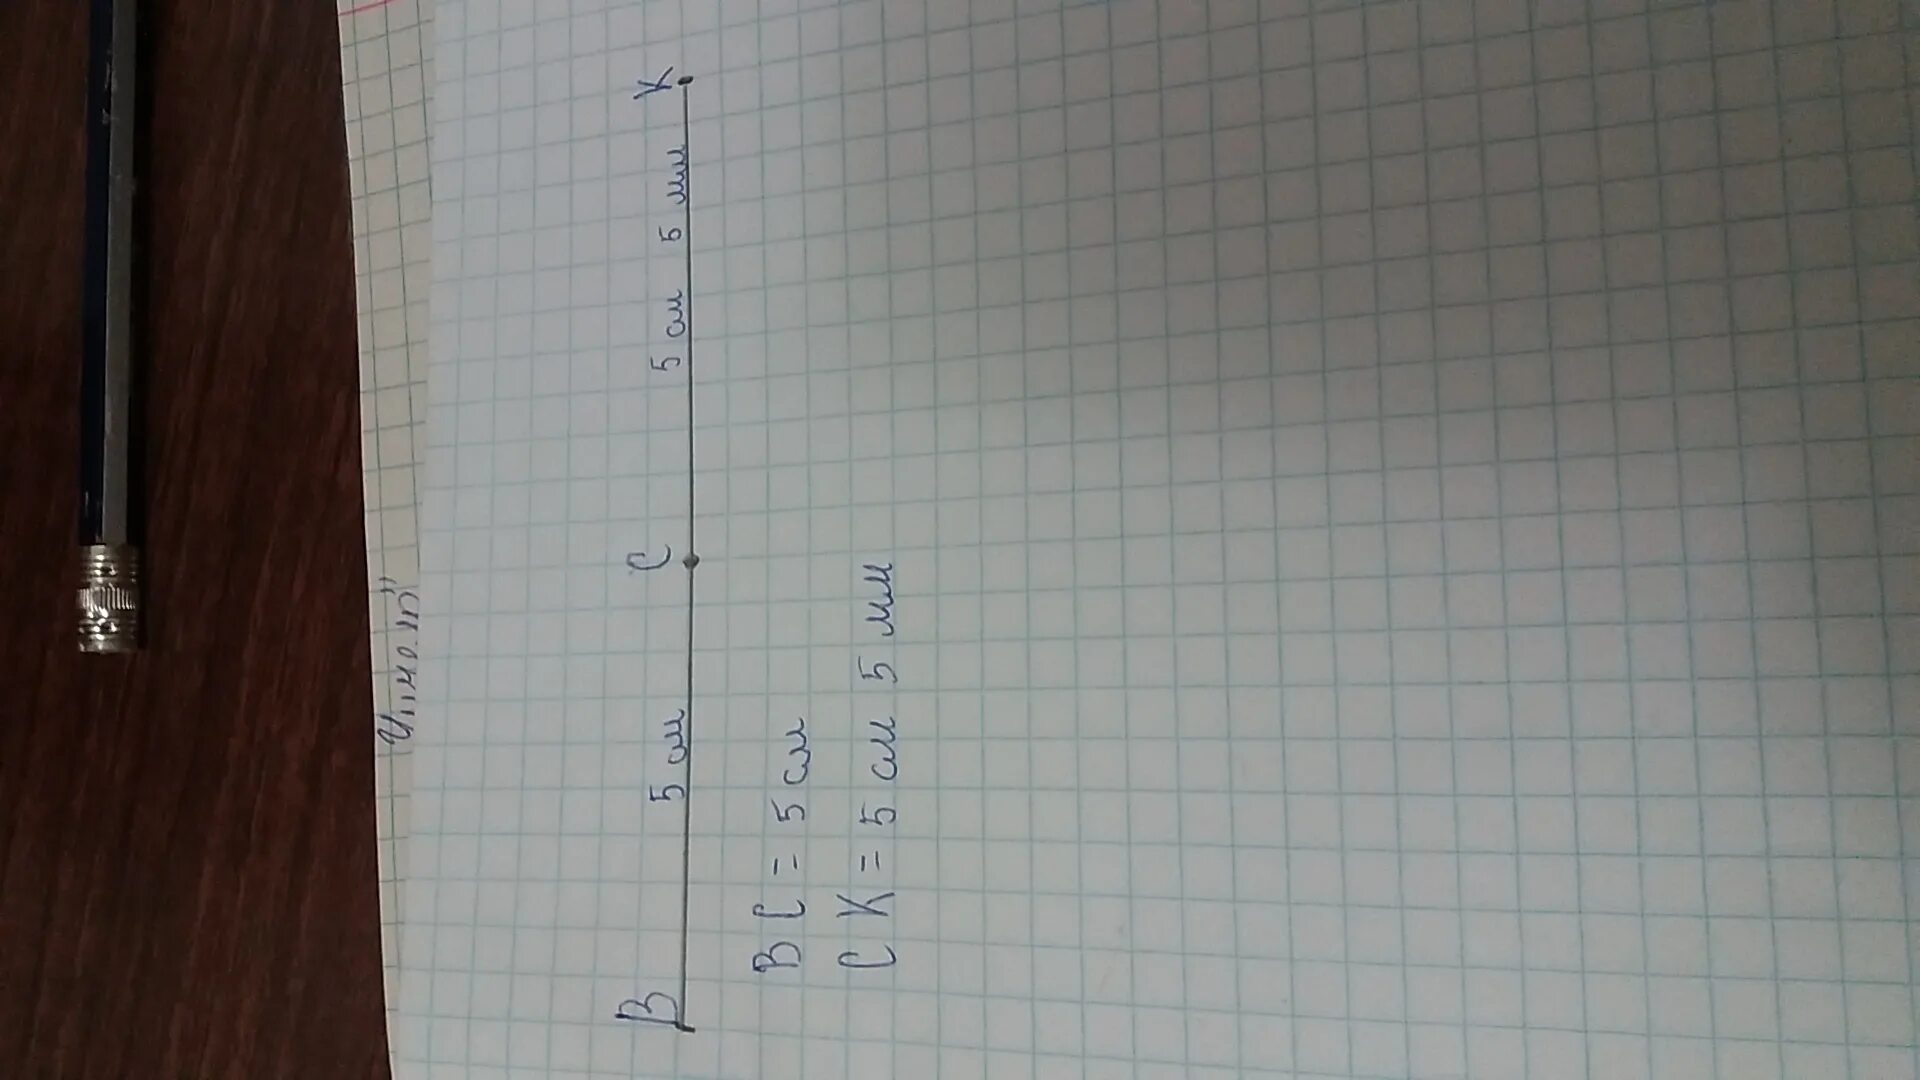 В C K
5 см 5 см 5 мм
BC = 5 см
CK = 5 см 5 мм